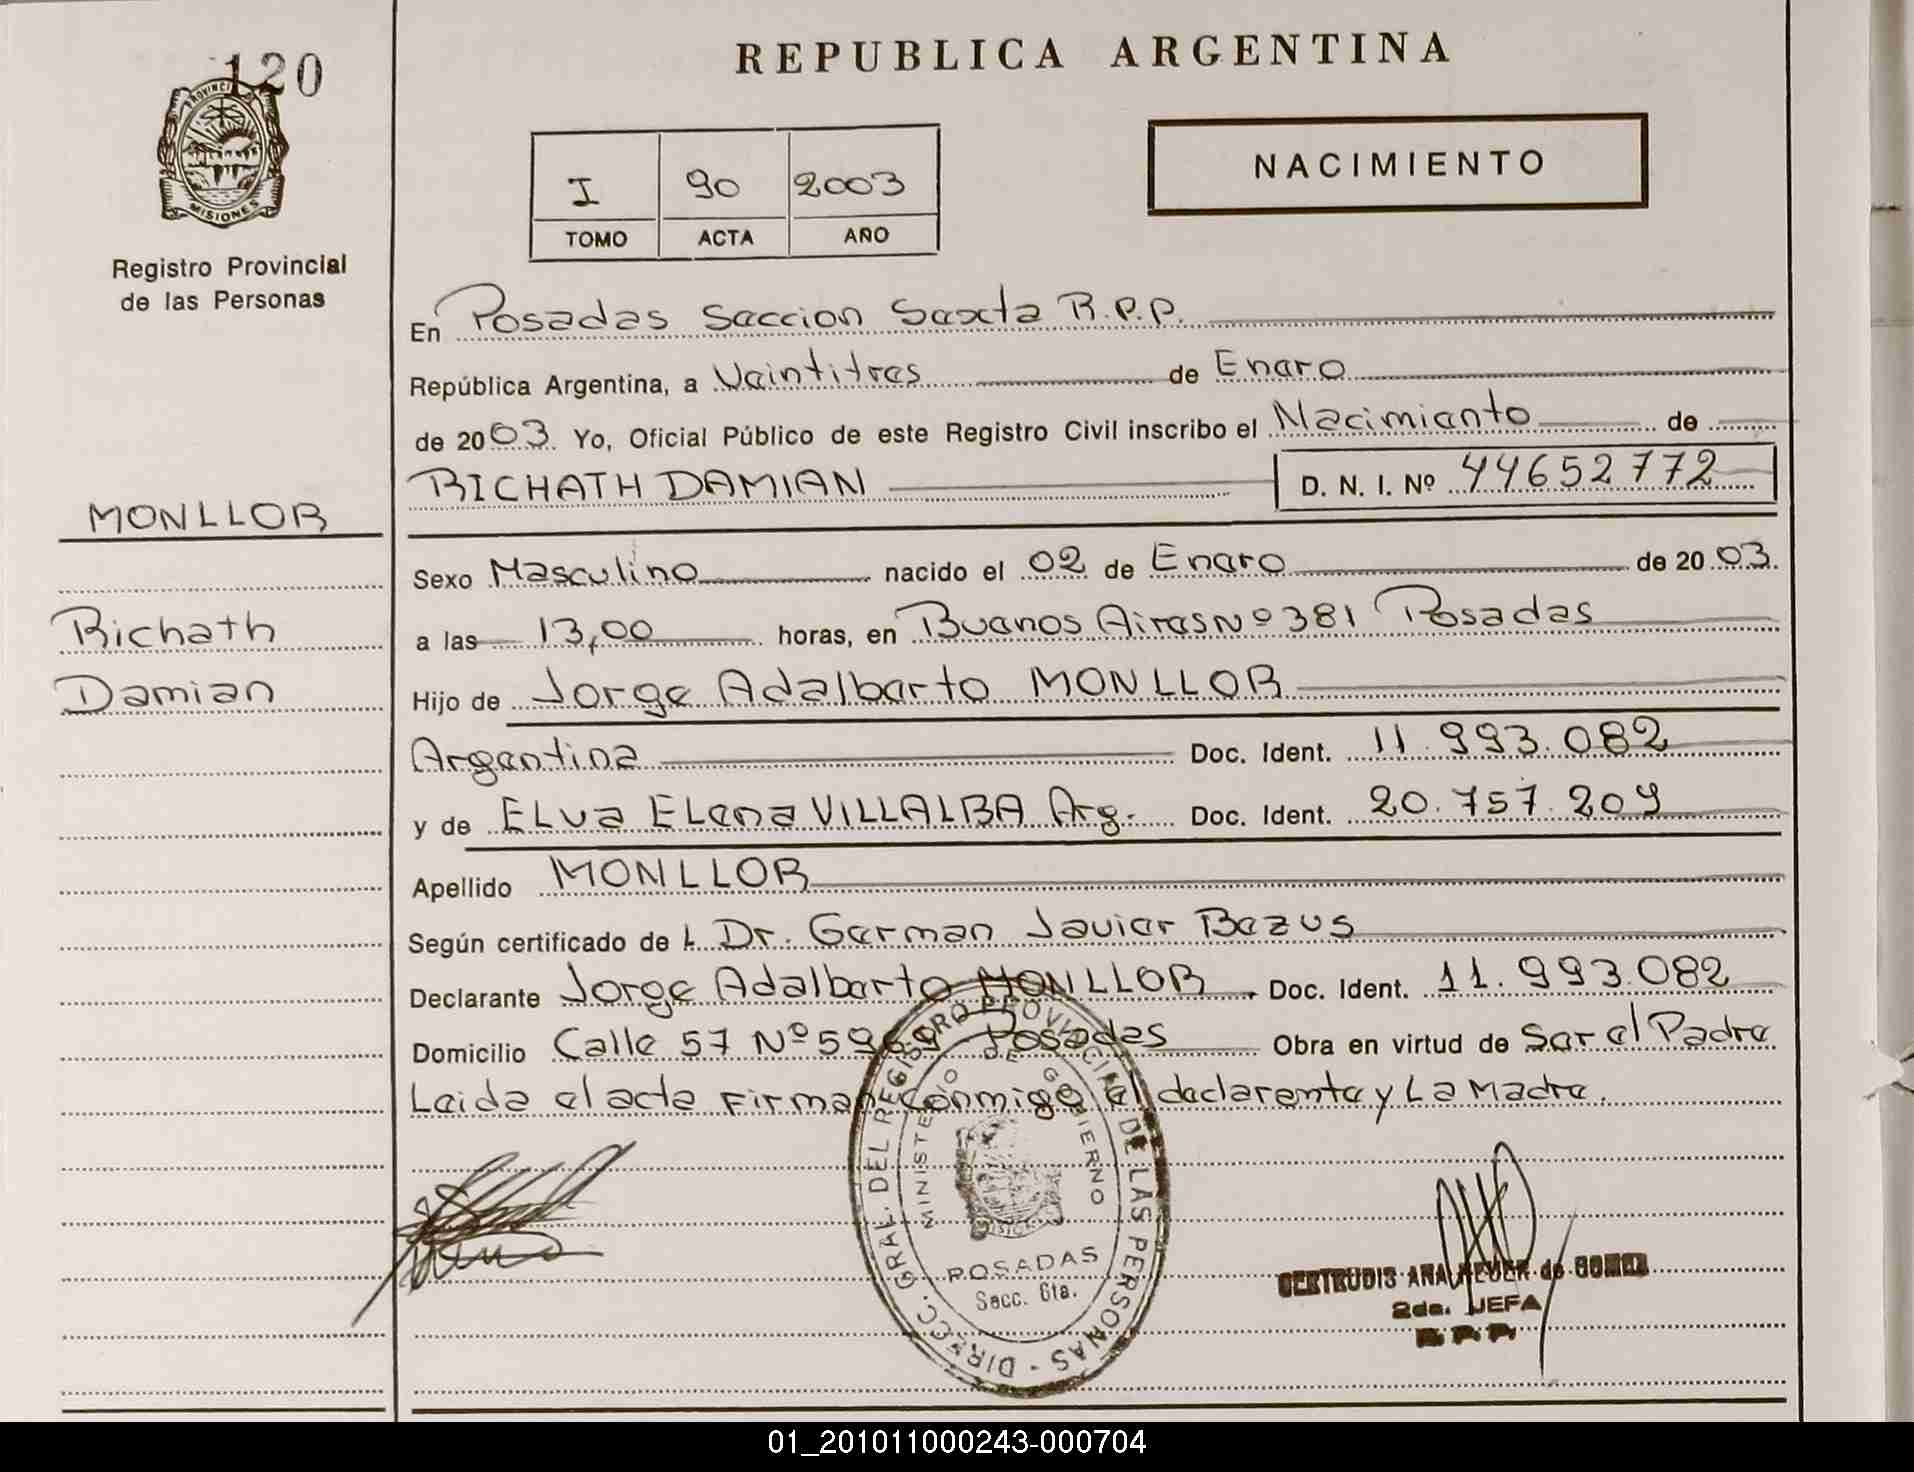 120
PROVINCIA DE
MISIONES
Registro Provincial
de las Personas
MONLLOR
Richath
Damian
REPUBLICA ARGENTINA
I 90 2003
TOMO ACTA AÑO
NACIMIENTO
En Posadas Seccion Sexta R.P.P.
República Argentina, a Veintitres de Enero
de 2003. Yo, Oficial Público de este Registro Civil inscribo el Nacimiento de
RICHATH DAMIAN D. N. I. Nº 44652772
Sexo Masculino nacido el 02 de Enero de 2003.
a las 13,00 horas, en Buenos Aires Nº 381 Posadas
Hijo de Jorge Adalberto MONLLOR
Argentina Doc. Ident. 11.993.082
y de ELva ELena VILLALBA Arg. Doc. Ident. 20.757.209
Apellido MONLLOR
Según certificado de l. Dr. German Javier Bazus
Declarante Jorge Adalberto MONLLOR. Doc. Ident. 11.993.082
Domicilio Calle 57 Nº 5969 Posadas Obra en virtud de Ser el Padre
Leida el acta Firman conmigo el declarante y La Madre.
DIREC. GRAL. DEL REGISTRO PROVINCIAL DE LAS PERSONAS
MINISTERIO DE GOBIERNO
POSADAS
Secc. 6ta.
GERTRUDIS ANA de GOMEZ
2da. JEFA
R. P. P.
01_201011000243-000704